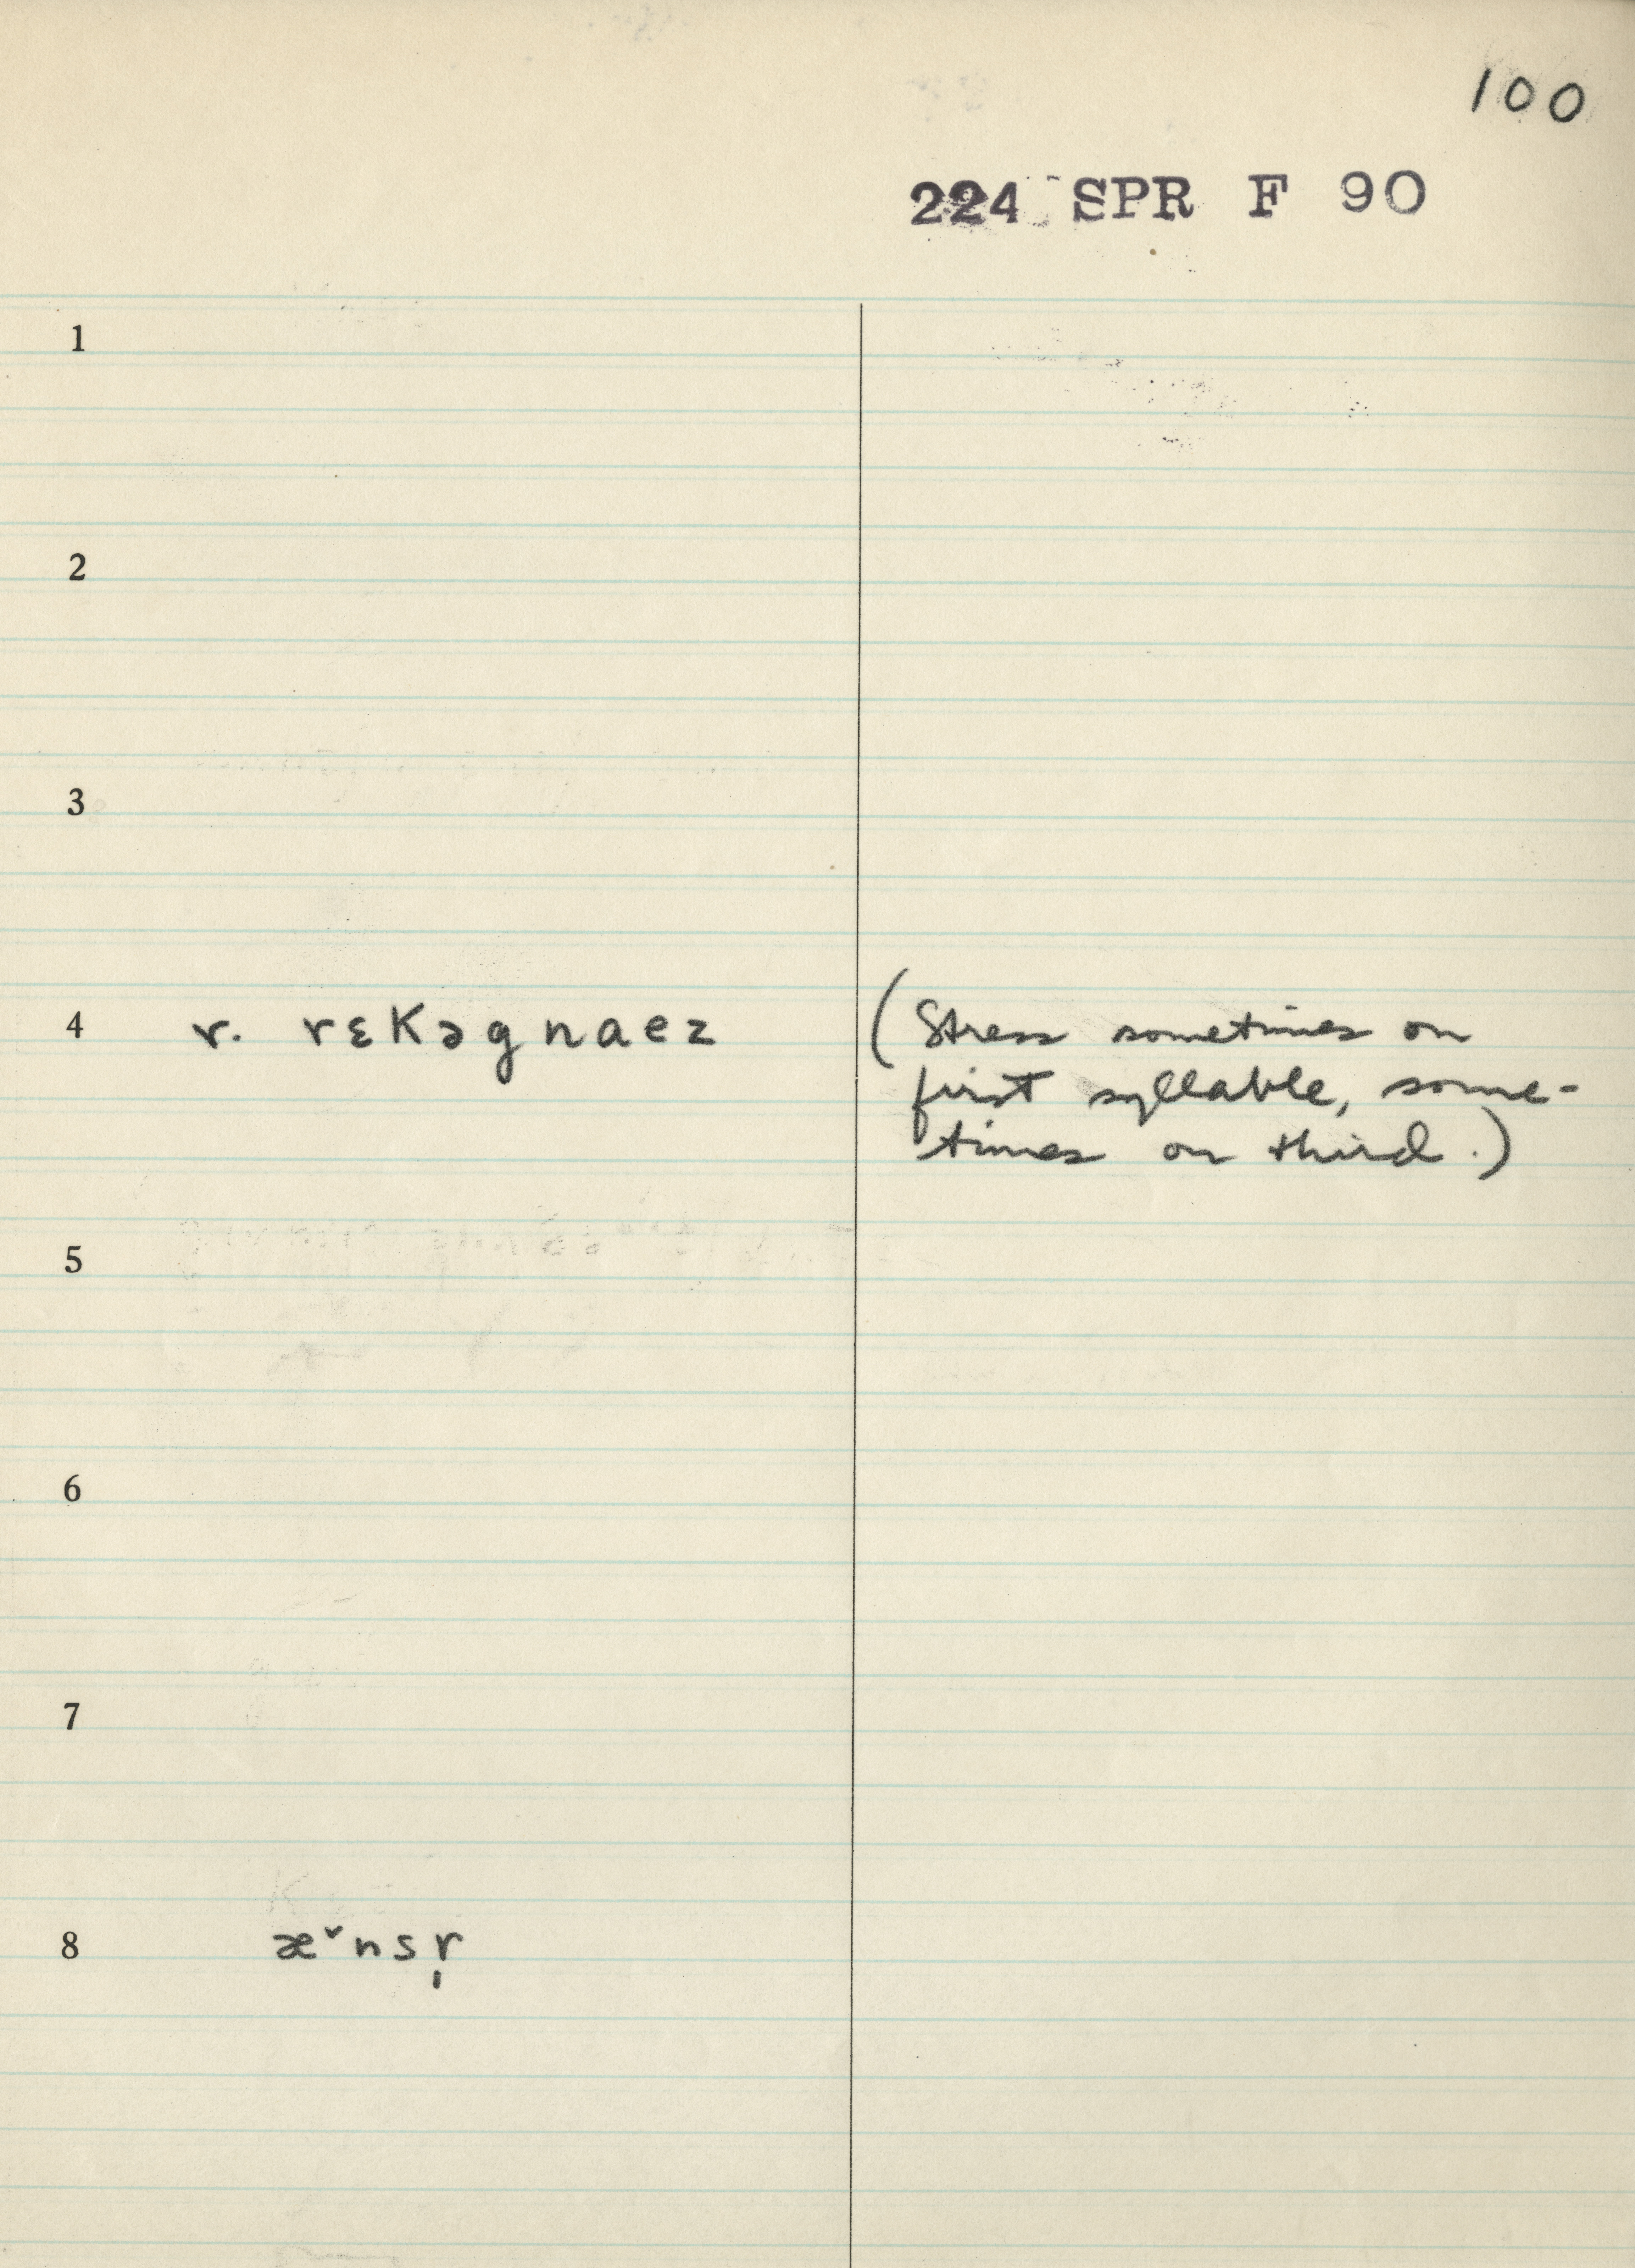 100
224 SPR F 90
1
2
3
4 r. rɛKəgnaez (Stress sometimes on
first syllable, some-
times on third.)
5
6
7
8 æˇnsr̩